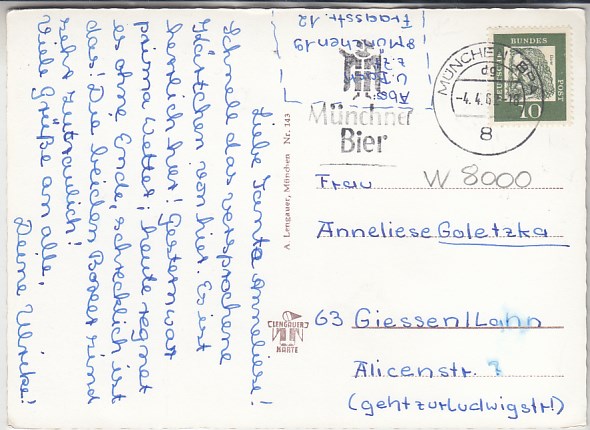 Liebe Tante Anneliese!
Schnell das versprochene
Kärtchen von hier. Es ist
herrlich hier! Gestern war
prima Wetter, heute regnet
es ohne Ende, schrecklich ist
das! Die beiden Boxer sind
sehr zutraulich!
Viele Grüße an alle,
Deine Ulrike!
Abs.:
U.
z.Z.
8 München 19
Fracisstr. 12
A. Lengauer, München Nr. 143
LENGAUER
KARTE
Münchner
Bier
MÜNCHEN BPA
-4.4.6
8
DEUTSCHE
BUNDES
POST
70
W 8000
Frau
Anneliese Goletzka
63 Giessen/Lahn
Alicenstr. ?
(geht zur Ludwigstr!)